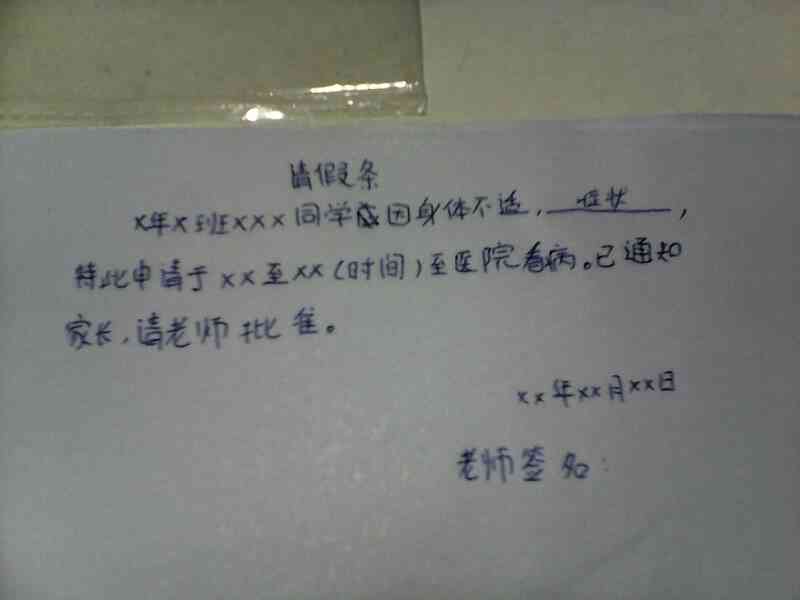 请假条
x年x班xxx同学因身体不适，症状，
特此申请于xx至xx(时间)至医院看病。已通知
家长，请老师批准。
xx年xx月xx日
老师签名：